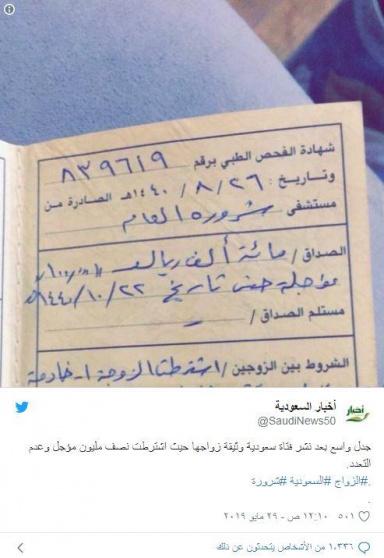 شهادة الفحص الطبي برقم ٨٣٩٦١٩
وتاريخ: ٢٦ / ٨ / ١٤٤٠هـ الصادرة من
مستشفى شروره العام
الصداق / مائة ألف ريال
مؤجلة حتى تاريخ ٢٢ / ١٠ / ١٤٤٠هـ
مستلم الصداق /
الشروط بين الزوجين / اشترطت الزوجة ١- خادمة
أخبار السعودية
@SaudiNews50
أخبار
جدل واسع بعد نشر فتاة سعودية وثيقة زواجها حيث اشترطت نصف مليون مؤجل وعدم
التعدد.
.#الزواج #السعودية #شرورة
.
٥٠١ ١٢:١٠ ص - ٢٩ مايو ٢٠١٩
١,٣٣٦ من الأشخاص يتحدثون عن ذلك